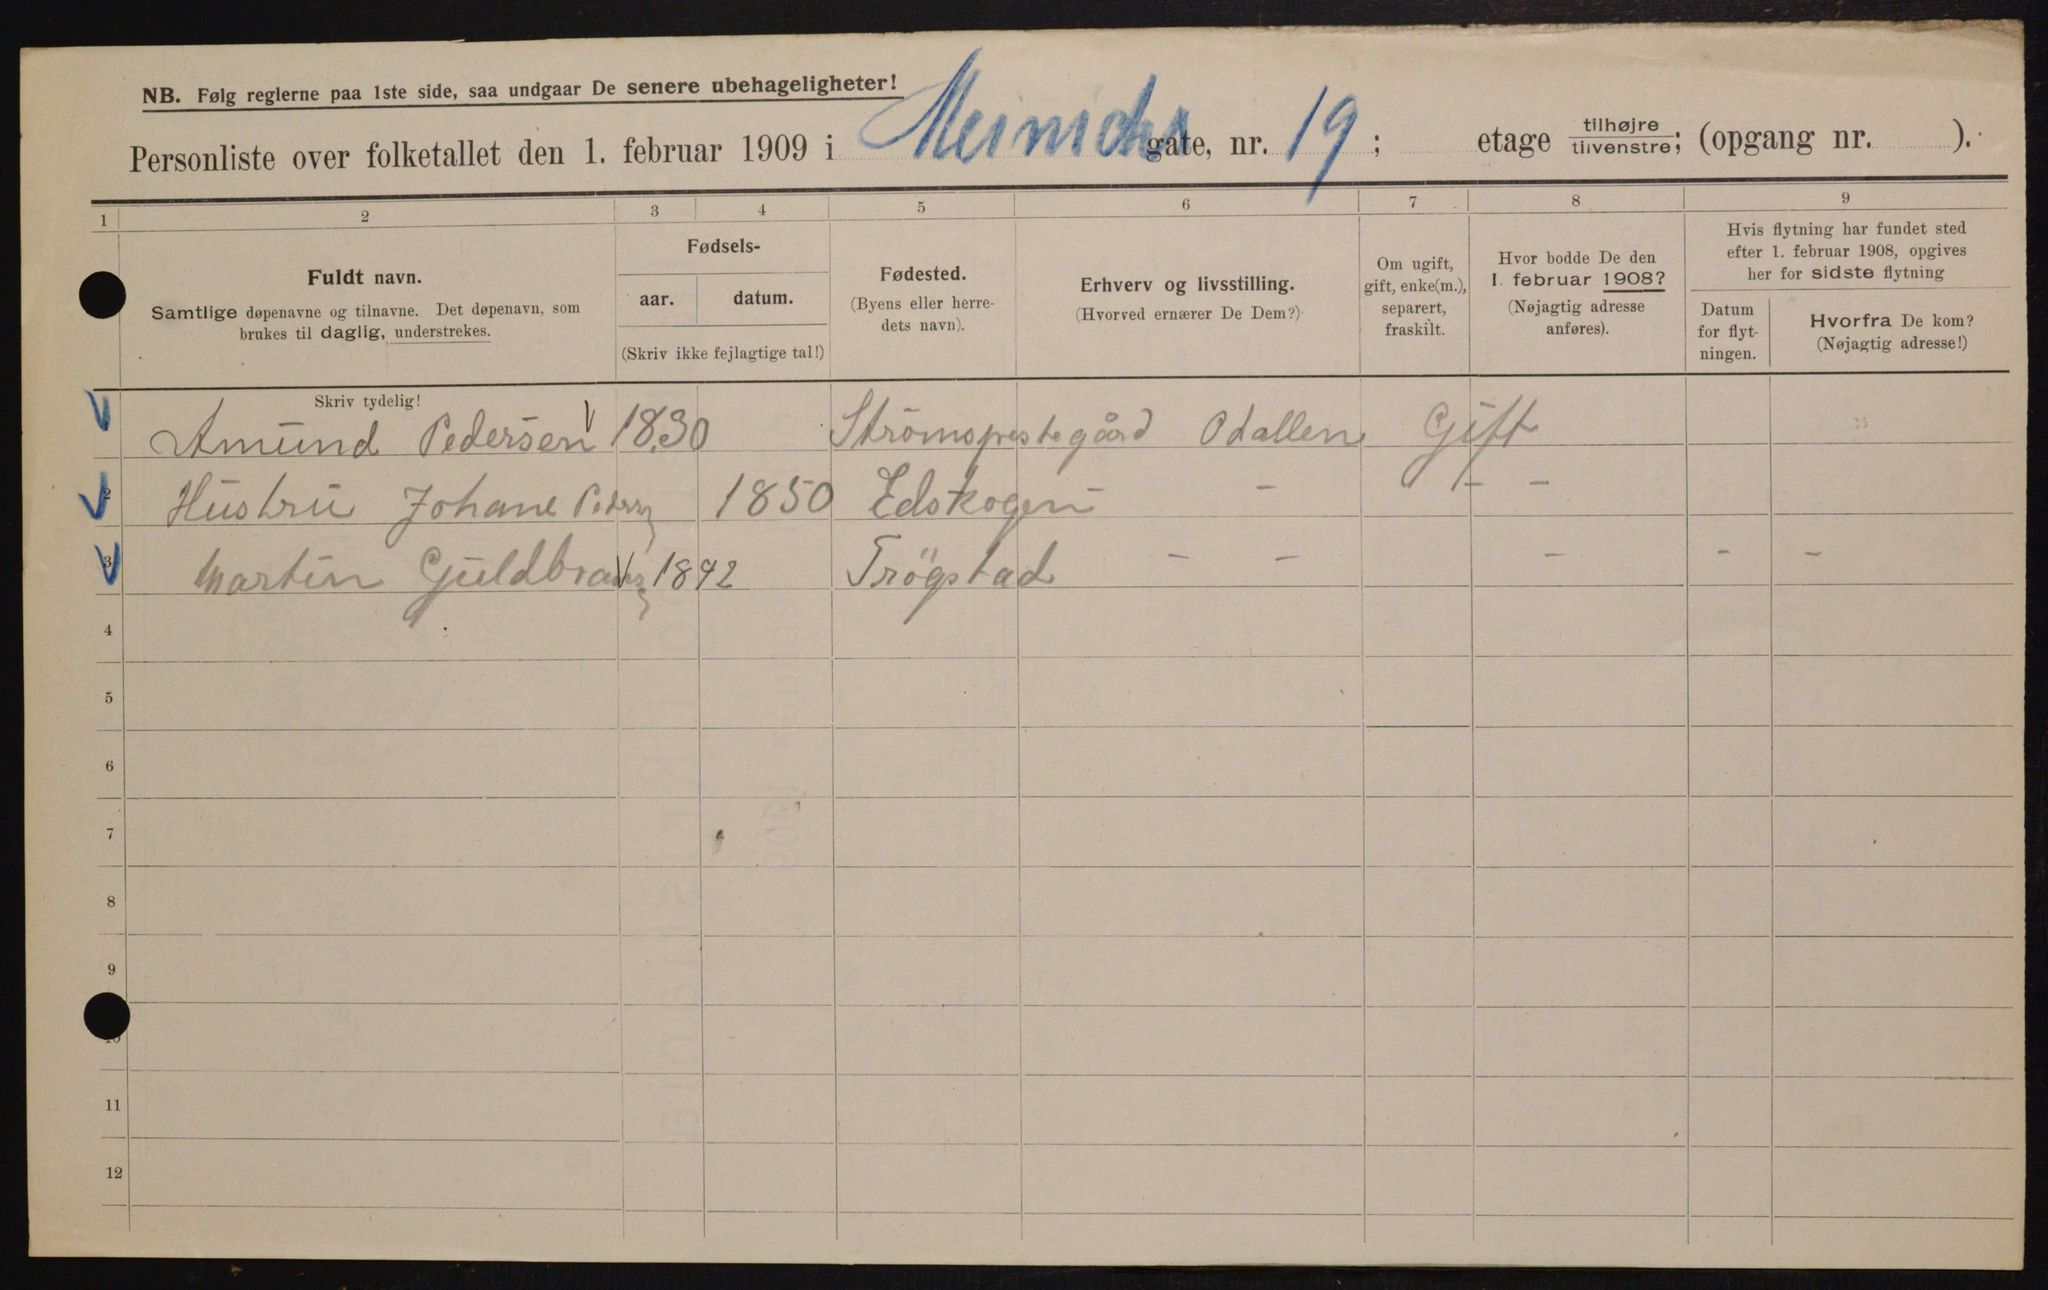 NB. Følg reglerne paa 1ste side, saa undgaar De senere ubehageligheter!
Personliste over folketallet den 1. februar 1909 i Meinichs gate, nr. 19; etage tilhøjre tilvenstre; (opgang nr. ).
1 2 3 4 5 6 7 8 9
Fuldt navn.
Samtlige døpenavne og tilnavne. Det døpenavn, som
brukes til daglig, understrekes.
Fødsels-
aar. datum.
(Skriv ikke fejlagtige tal!)
Fødested.
(Byens eller herre-
dets navn).
Erhverv og livsstilling.
(Hvorved ernærer De Dem?)
Om ugift,
gift, enke(m.),
separert,
fraskilt.
Hvor bodde De den
1. februar 1908?
(Nøjagtig adresse
anføres).
Hvis flytning har fundet sted
efter 1. februar 1908, opgives
her for sidste flytning
Datum
for flyt-
ningen.
Hvorfra De kom?
(Nøjagtig adresse!)
Skriv tydelig!
Amund Pedersen 1830 Strömspestegård Odallen Gift
2 Hustru Johane 1850 Edskogen - - -
3 Martin 1892 Trögstad - - - - -
4
5
6
7
8
9
10
11
12